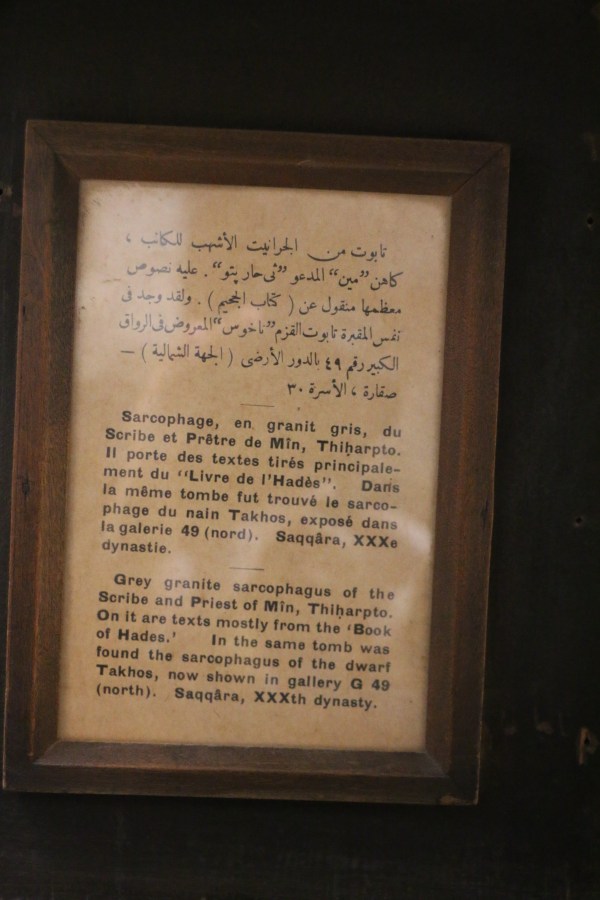 تابوت من الجرانيت الأشهب للكاتب ،
كاهن "مين" المدعو "ثى حار پتو" . عليه نصوص
معظمها منقول عن ( كتاب الجحيم ) . ولقد وجد فى
نفس المقبرة تابوت القزم "تاخوس" المعروض فى الرواق
الكبير رقم ٤٩ بالدور الأرضى ( الجهة الشمالية ) —
صقارة ، الأسرة ٣٠
Sarcophage, en granit gris, du
Scribe et Prêtre de Mîn, Thiḥarpto.
Il porte des textes tirés principale-
ment du "Livre de l'Hadès". Dans
la même tombe fut trouvé le sarco-
phage du nain Takhos, exposé dans
la galerie 49 (nord). Saqqâra, XXXe
dynastie.
Grey granite sarcophagus of the
Scribe and Priest of Mîn, Thiḥarpto.
On it are texts mostly from the 'Book
of Hades.' In the same tomb was
found the sarcophagus of the dwarf
Takhos, now shown in gallery G 49
(north). Saqqâra, XXXth dynasty.